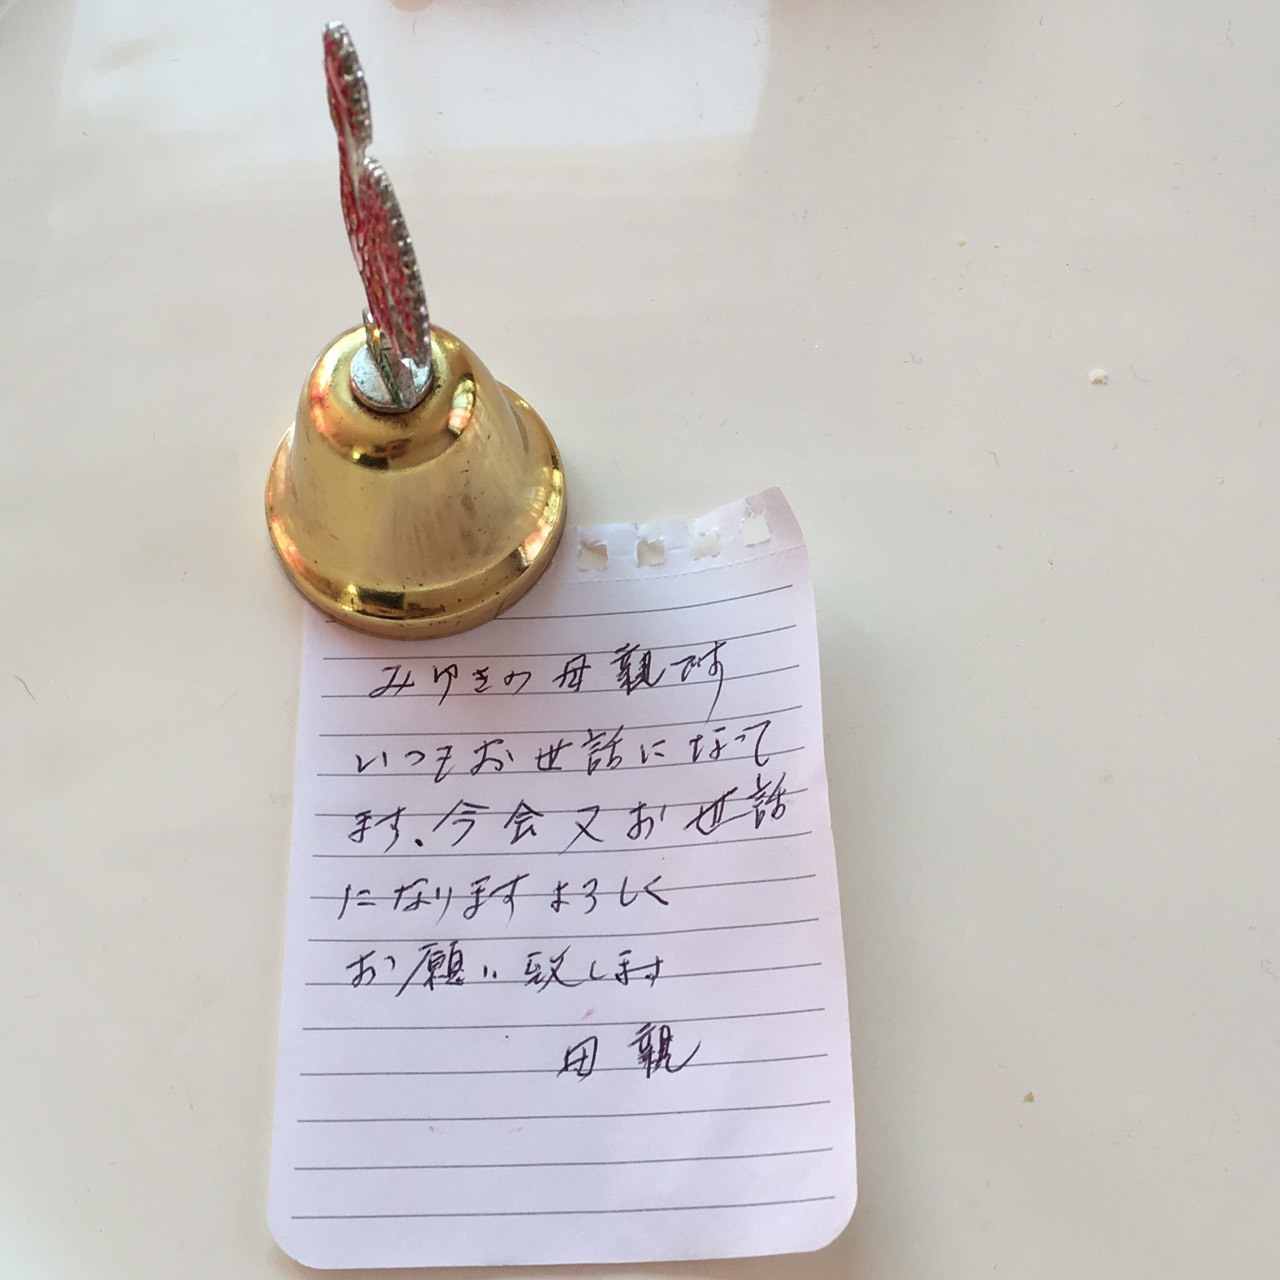 みゆきの母親です
いつもお世話になって
ます、今会又お世話
になりますよろしく
お願い致します
母親